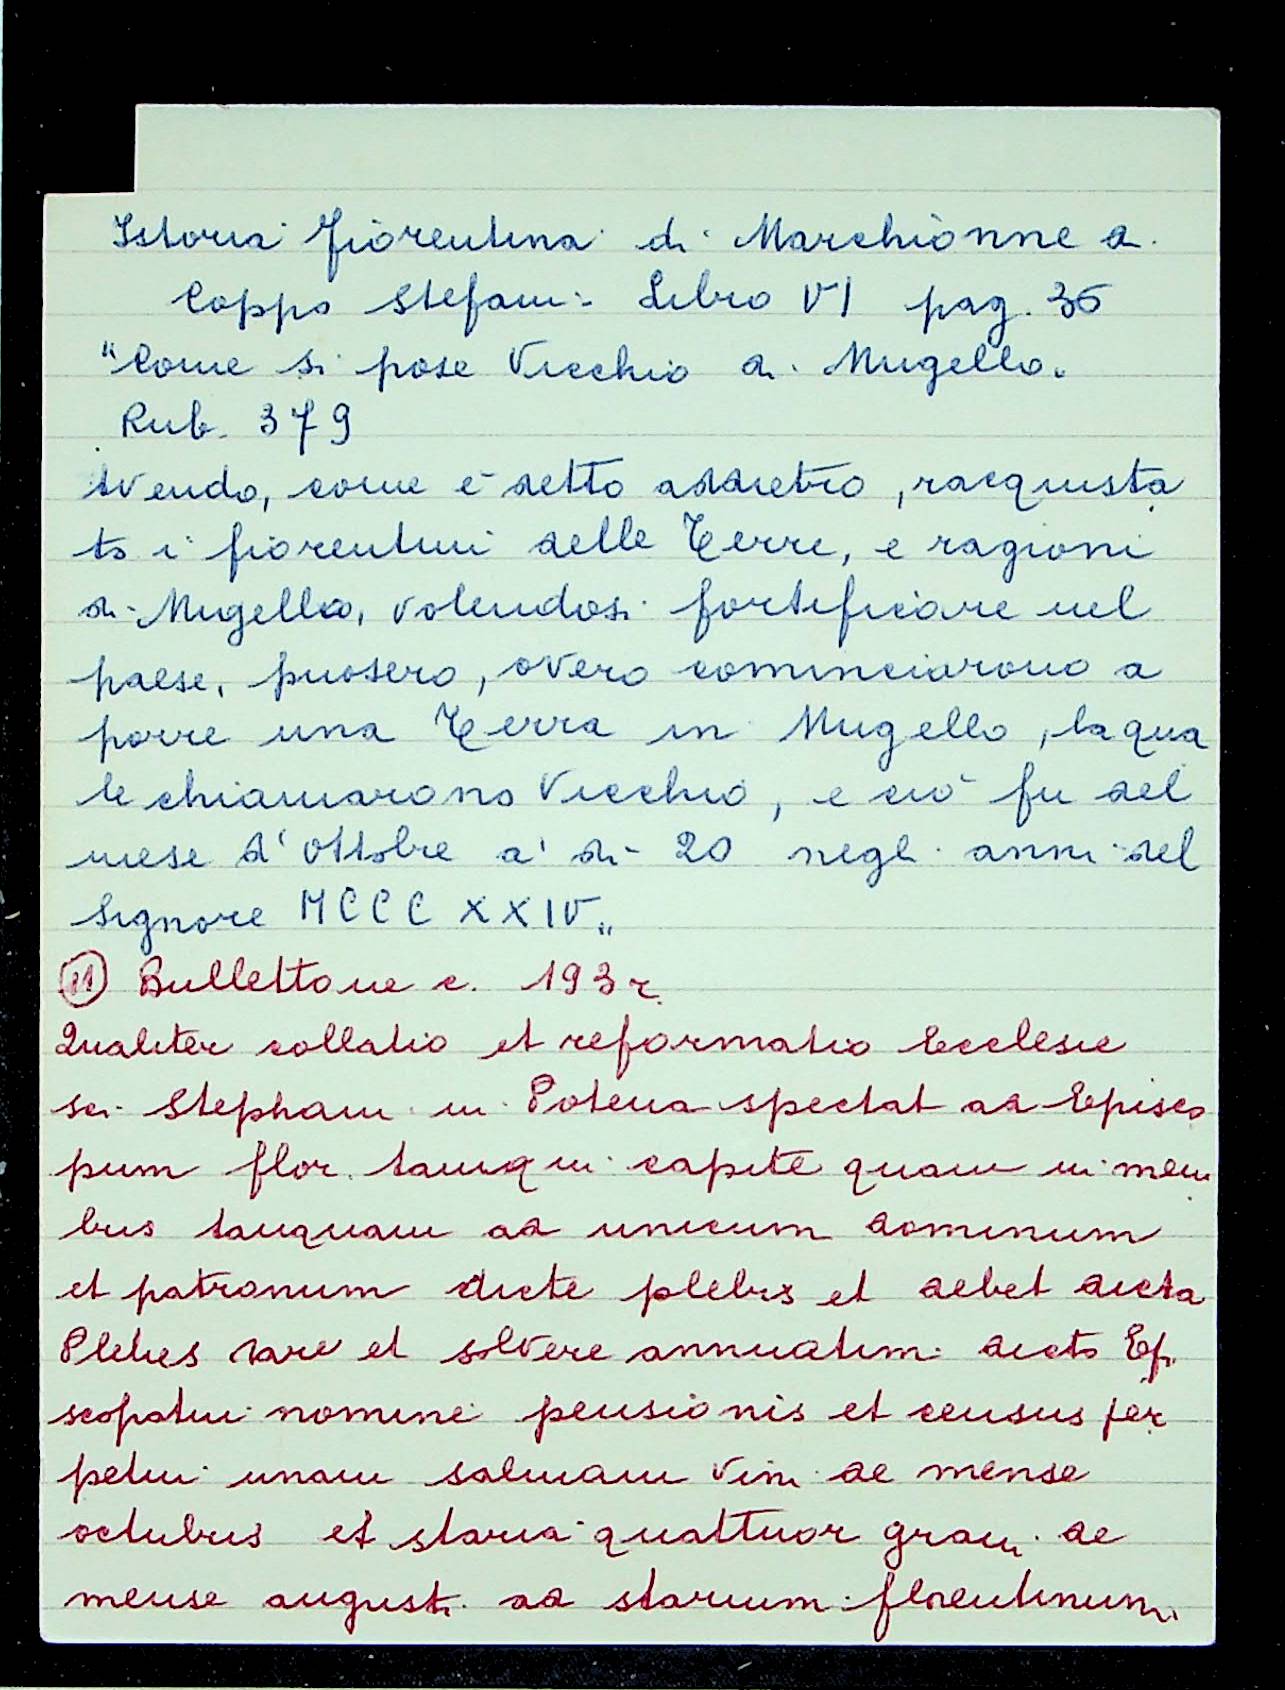 Istoria fiorentina di Marchionne di
Coppo Stefani - Libro VI pag. 36
"Come si pose Vicchio di Mugello.
Rub. 379
Avendo, come è detto addietro, racquista
to i fiorentini delle Terre, e ragioni
di Mugello, volendosi fortificare nel
paese, puosero, overo cominciarono a
porre una Terra in Mugello, la qua
le chiamarono Vicchio, e ciò fu del
mese d'ottobre a' dì 20 negli anni del
Signore MCCCXXIV"
(11) Bullettone c. 193 r.
Qualiter collatio et reformatio Ecclesie
sci Stephani in Potena spectat ad Episco
pum flor. tamq in capite quam in mem
bris tanquam ad unicum dominum
et patronum dicte plebis et debet dicta
Plebes dare et solvere annuatim dicto Epi
scopatui nomine pensionis et census per
petui unam salmam vini de mense
octubris et staria quattuor grani de
mense augusti ad starium florentinum.